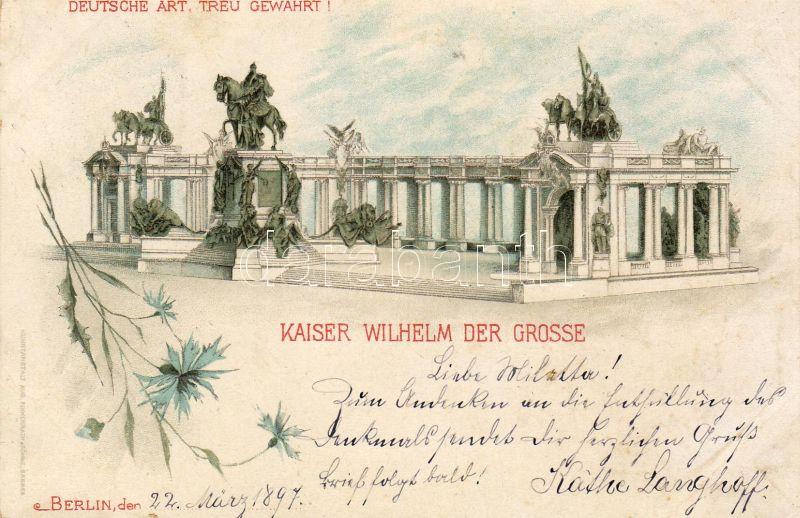 DEUTSCHE ART, TREU GEWAHRT!
darabanth
KAISER WILHELM DER GROSSE
Liebe Miletta!
Zum Andenken an die Enthüllung des
Denkmals sendet Dir herzlichen Gruß
Brief folgt bald! Käthe Langhoff.
BERLIN, den 22. März 1897.